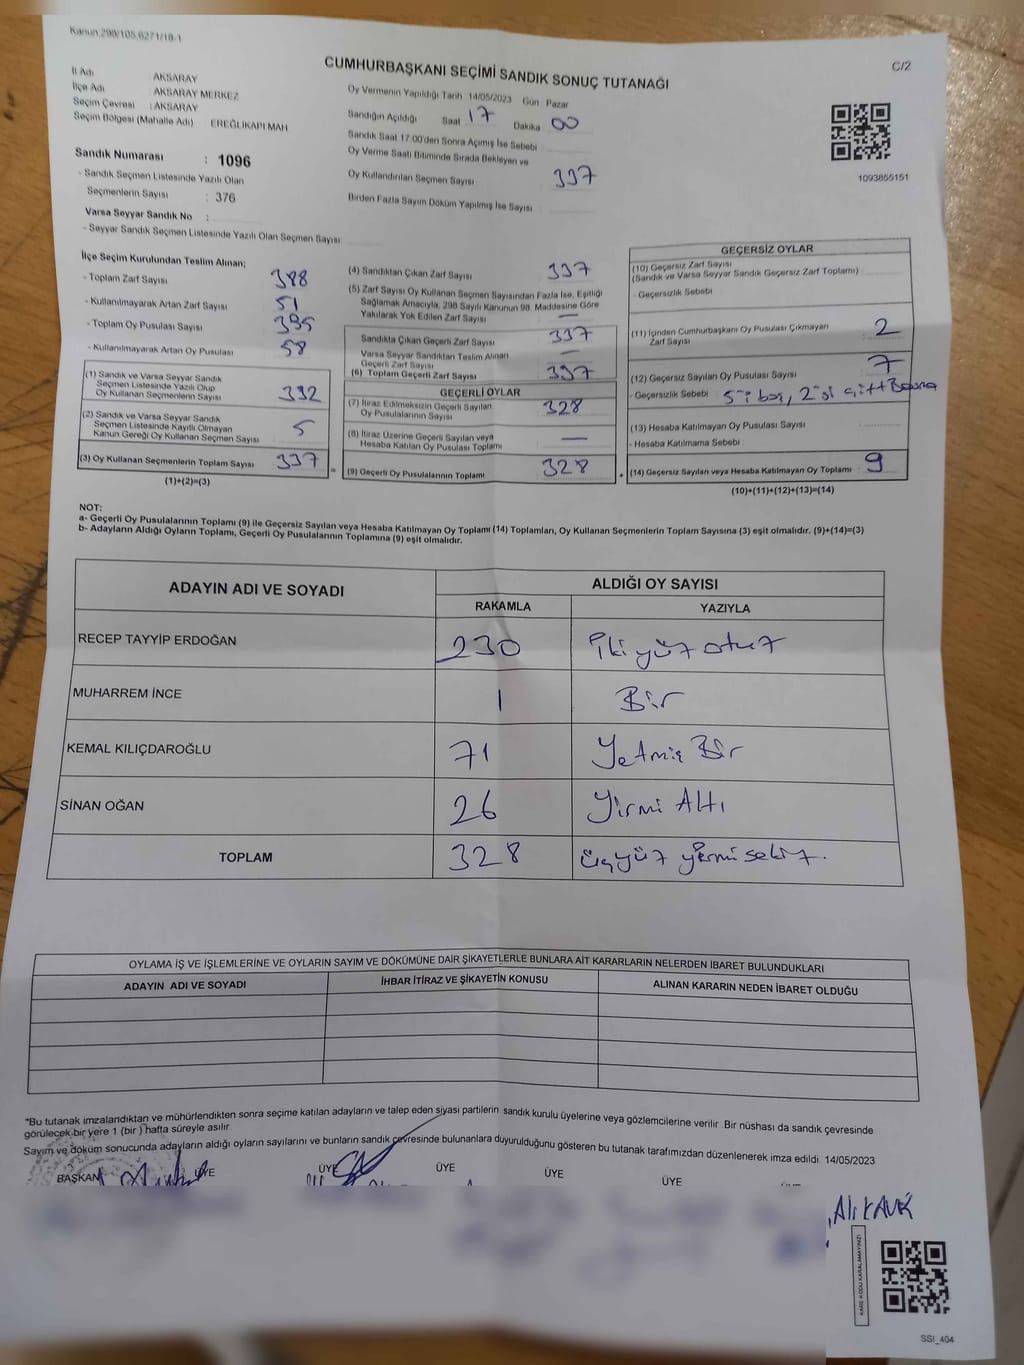 Kanun.298/105,6271/18-1
C/2
CUMHURBAŞKANI SEÇİMİ SANDIK SONUÇ TUTANAĞI
İl Adı : AKSARAY
İlçe Adı : AKSARAY MERKEZ
Seçim Çevresi : AKSARAY
Seçim Bölgesi (Mahalle Adı) : EREĞLİKAPI MAH
Sandık Numarası : 1096
- Sandık Seçmen Listesinde Yazılı Olan
Seçmenlerin Sayısı : 376
Varsa Seyyar Sandık No :
- Seyyar Sandık Seçmen Listesinde Yazılı Olan Seçmen Sayısı:
Oy Vermenin Yapıldığı Tarih 14/05/2023 Gün Pazar
Sandığın Açıldığı Saat 17 Dakika 00
Sandık Saat 17:00'den Sonra Açımış İse Sebebi
Oy Verme Saati Bitiminde Sırada Bekleyen ve
Oy Kullandırılan Seçmen Sayısı 337
Birden Fazla Sayım Döküm Yapılmış İse Sayısı
1093855151
İlçe Seçim Kurulundan Teslim Alınan;
- Toplam Zarf Sayısı 388
- Kullanılmayarak Artan Zarf Sayısı 51
- Toplam Oy Pusulası Sayısı 395
- Kullanılmayarak Artan Oy Pusulası 58
(1) Sandık ve Varsa Seyyar Sandık
Seçmen Listesinde Yazılı Olup
Oy Kullanan Seçmenlerin Sayısı 332
(2) Sandık ve Varsa Seyyar Sandık
Seçmen Listesinde Kayıtlı Olmayan
Kanun Gereği Oy Kullanan Seçmen Sayısı 5
(3) Oy Kullanan Seçmenlerin Toplam Sayısı 337
(1)+(2)=(3)
=
(4) Sandıktan Çıkan Zarf Sayısı 337
(5) Zarf Sayısı Oy Kullanan Seçmen Sayısından Fazla İse, Eşitliği
Sağlamak Amacıyla, 298 Sayılı Kanunun 98. Maddesine Göre
Yakılarak Yok Edilen Zarf Sayısı —
Sandıkta Çıkan Geçerli Zarf Sayısı 337
Varsa Seyyar Sandıktan Teslim Alınan
Geçerli Zarf Sayısı —
(6) Toplam Geçerli Zarf Sayısı 337
GEÇERLİ OYLAR
(7) İtiraz Edilmeksizin Geçerli Sayılan
Oy Pusulalarının Sayısı 328
(8) İtiraz Üzerine Geçerli Sayılan veya
Hesaba Katılan Oy Pusulası Toplamı —
(9) Geçerli Oy Pusulalarının Toplamı 328
+
GEÇERSİZ OYLAR
(10) Geçersiz Zarf Sayısı
(Sandık ve Varsa Seyyar Sandık Geçersiz Zarf Toplamı)
- Geçersizlik Sebebi
(11) İçinden Cumhurbaşkanı Oy Pusulası Çıkmayan
Zarf Sayısı 2
(12) Geçersiz Sayılan Oy Pusulası Sayısı 7
- Geçersizlik Sebebi 5'i boş, 2'si çift
(13) Hesaba Katılmayan Oy Pusulası Sayısı
- Hesaba Katılmama Sebebi
(14) Geçersiz Sayılan veya Hesaba Katılmayan Oy Toplamı 9
(10)+(11)+(12)+(13)=(14)
NOT:
a- Geçerli Oy Pusulalarının Toplamı (9) ile Geçersiz Sayılan veya Hesaba Katılmayan Oy Toplamı (14) Toplamları, Oy Kullanan Seçmenlerin Toplam Sayısına (3) eşit olmalıdır. (9)+(14)=(3)
b- Adayların Aldığı Oyların Toplamı, Geçerli Oy Pusulalarının Toplamına (9) eşit olmalıdır.
ADAYIN ADI VE SOYADI
ALDIĞI OY SAYISI
RAKAMLA YAZIYLA
RECEP TAYYİP ERDOĞAN 230 İki yüz otuz
MUHARREM İNCE 1 Bir
KEMAL KILIÇDAROĞLU 71 Yetmiş Bir
SİNAN OĞAN 26 Yirmi Altı
TOPLAM 328 üçyüz yirmi sekiz.
OYLAMA İŞ VE İŞLEMLERİNE VE OYLARIN SAYIM VE DÖKÜMÜNE DAİR ŞİKAYETLERLE BUNLARA AİT KARARLARIN NELERDEN İBARET BULUNDUKLARI
ADAYIN ADI VE SOYADI İHBAR İTİRAZ VE ŞİKAYETİN KONUSU ALINAN KARARIN NEDEN İBARET OLDUĞU
*Bu tutanak imzalandıktan ve mühürlendikten sonra seçime katılan adayların ve talep eden siyasi partilerin sandık kurulu üyelerine veya gözlemcilerine verilir. Bir nüshası da sandık çevresinde
görülecek bir yere 1 (bir) hafta süreyle asılır.
Sayım ve döküm sonucunda adayların aldığı oyların sayılarını ve bunların sandık çevresinde bulunanlara duyurulduğunu gösteren bu tutanak tarafımızdan düzenlenerek imza edildi. 14/05/2023
BAŞKAN ÜYE ÜYE ÜYE ÜYE ÜYE
KARE KODU KARALAMAYINIZ!
SSI_404